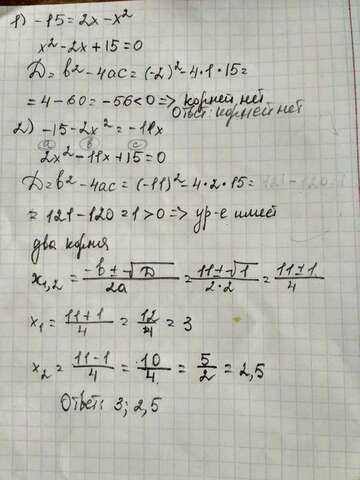 1) -15=2x-x²
x²-2x+15=0
D=b²-4ac=(-2)²-4·1·15=
=4-60=-56<0=> корней нет
Ответ: корней нет
2) -15-2x²=-11x
a b c
2x²-11x+15=0
D=b²-4ac=(-11)²-4·2·15=121-120
=121-120=1>0=> ур-е имеет
два корня
x₁,₂=(-b±√D)/2a=(11±√1)/2·2=(11±1)/4
x₁=(11+1)/4=12/4=3
x₂=(11-1)/4=10/4=5/2=2,5
Ответ: 3; 2,5